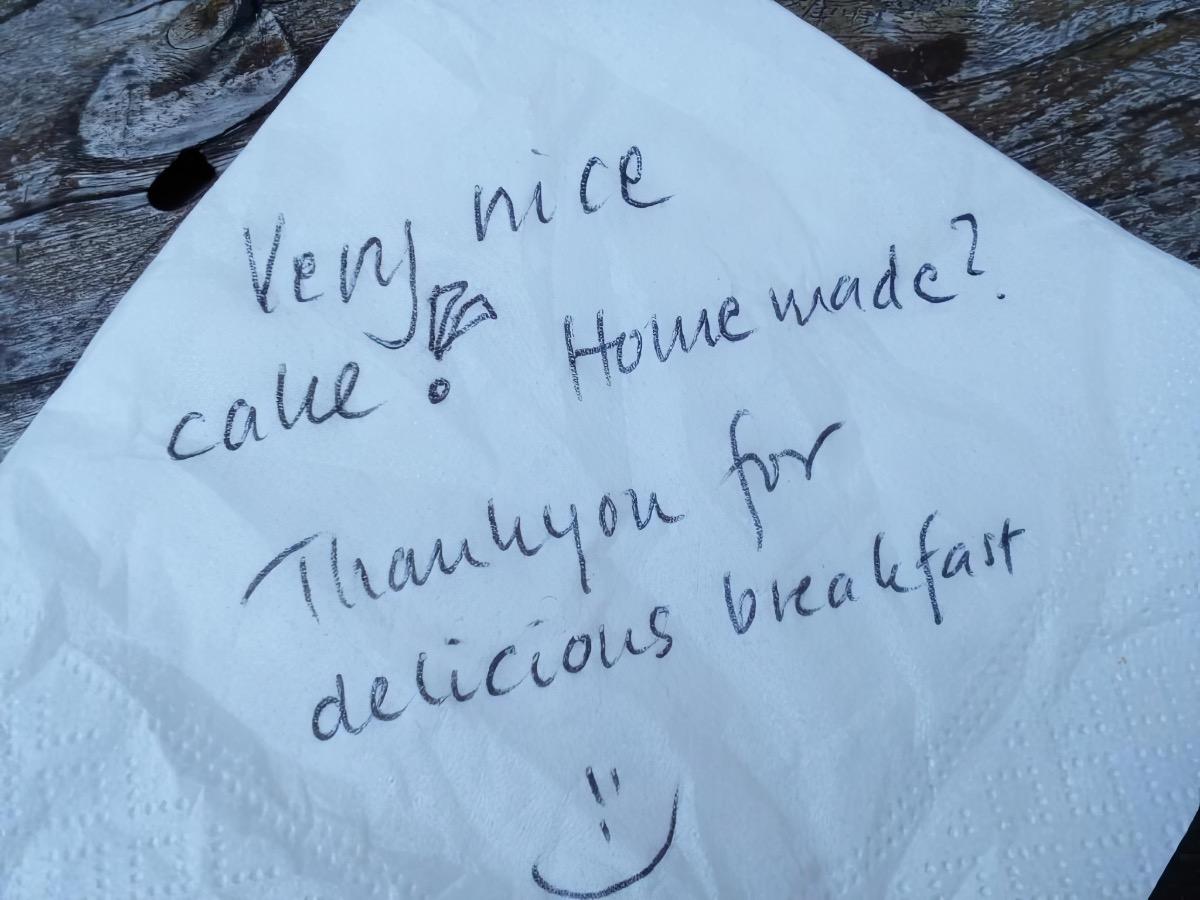 Very nice
cake! Homemade?
Thankyou for
delicious breakfast